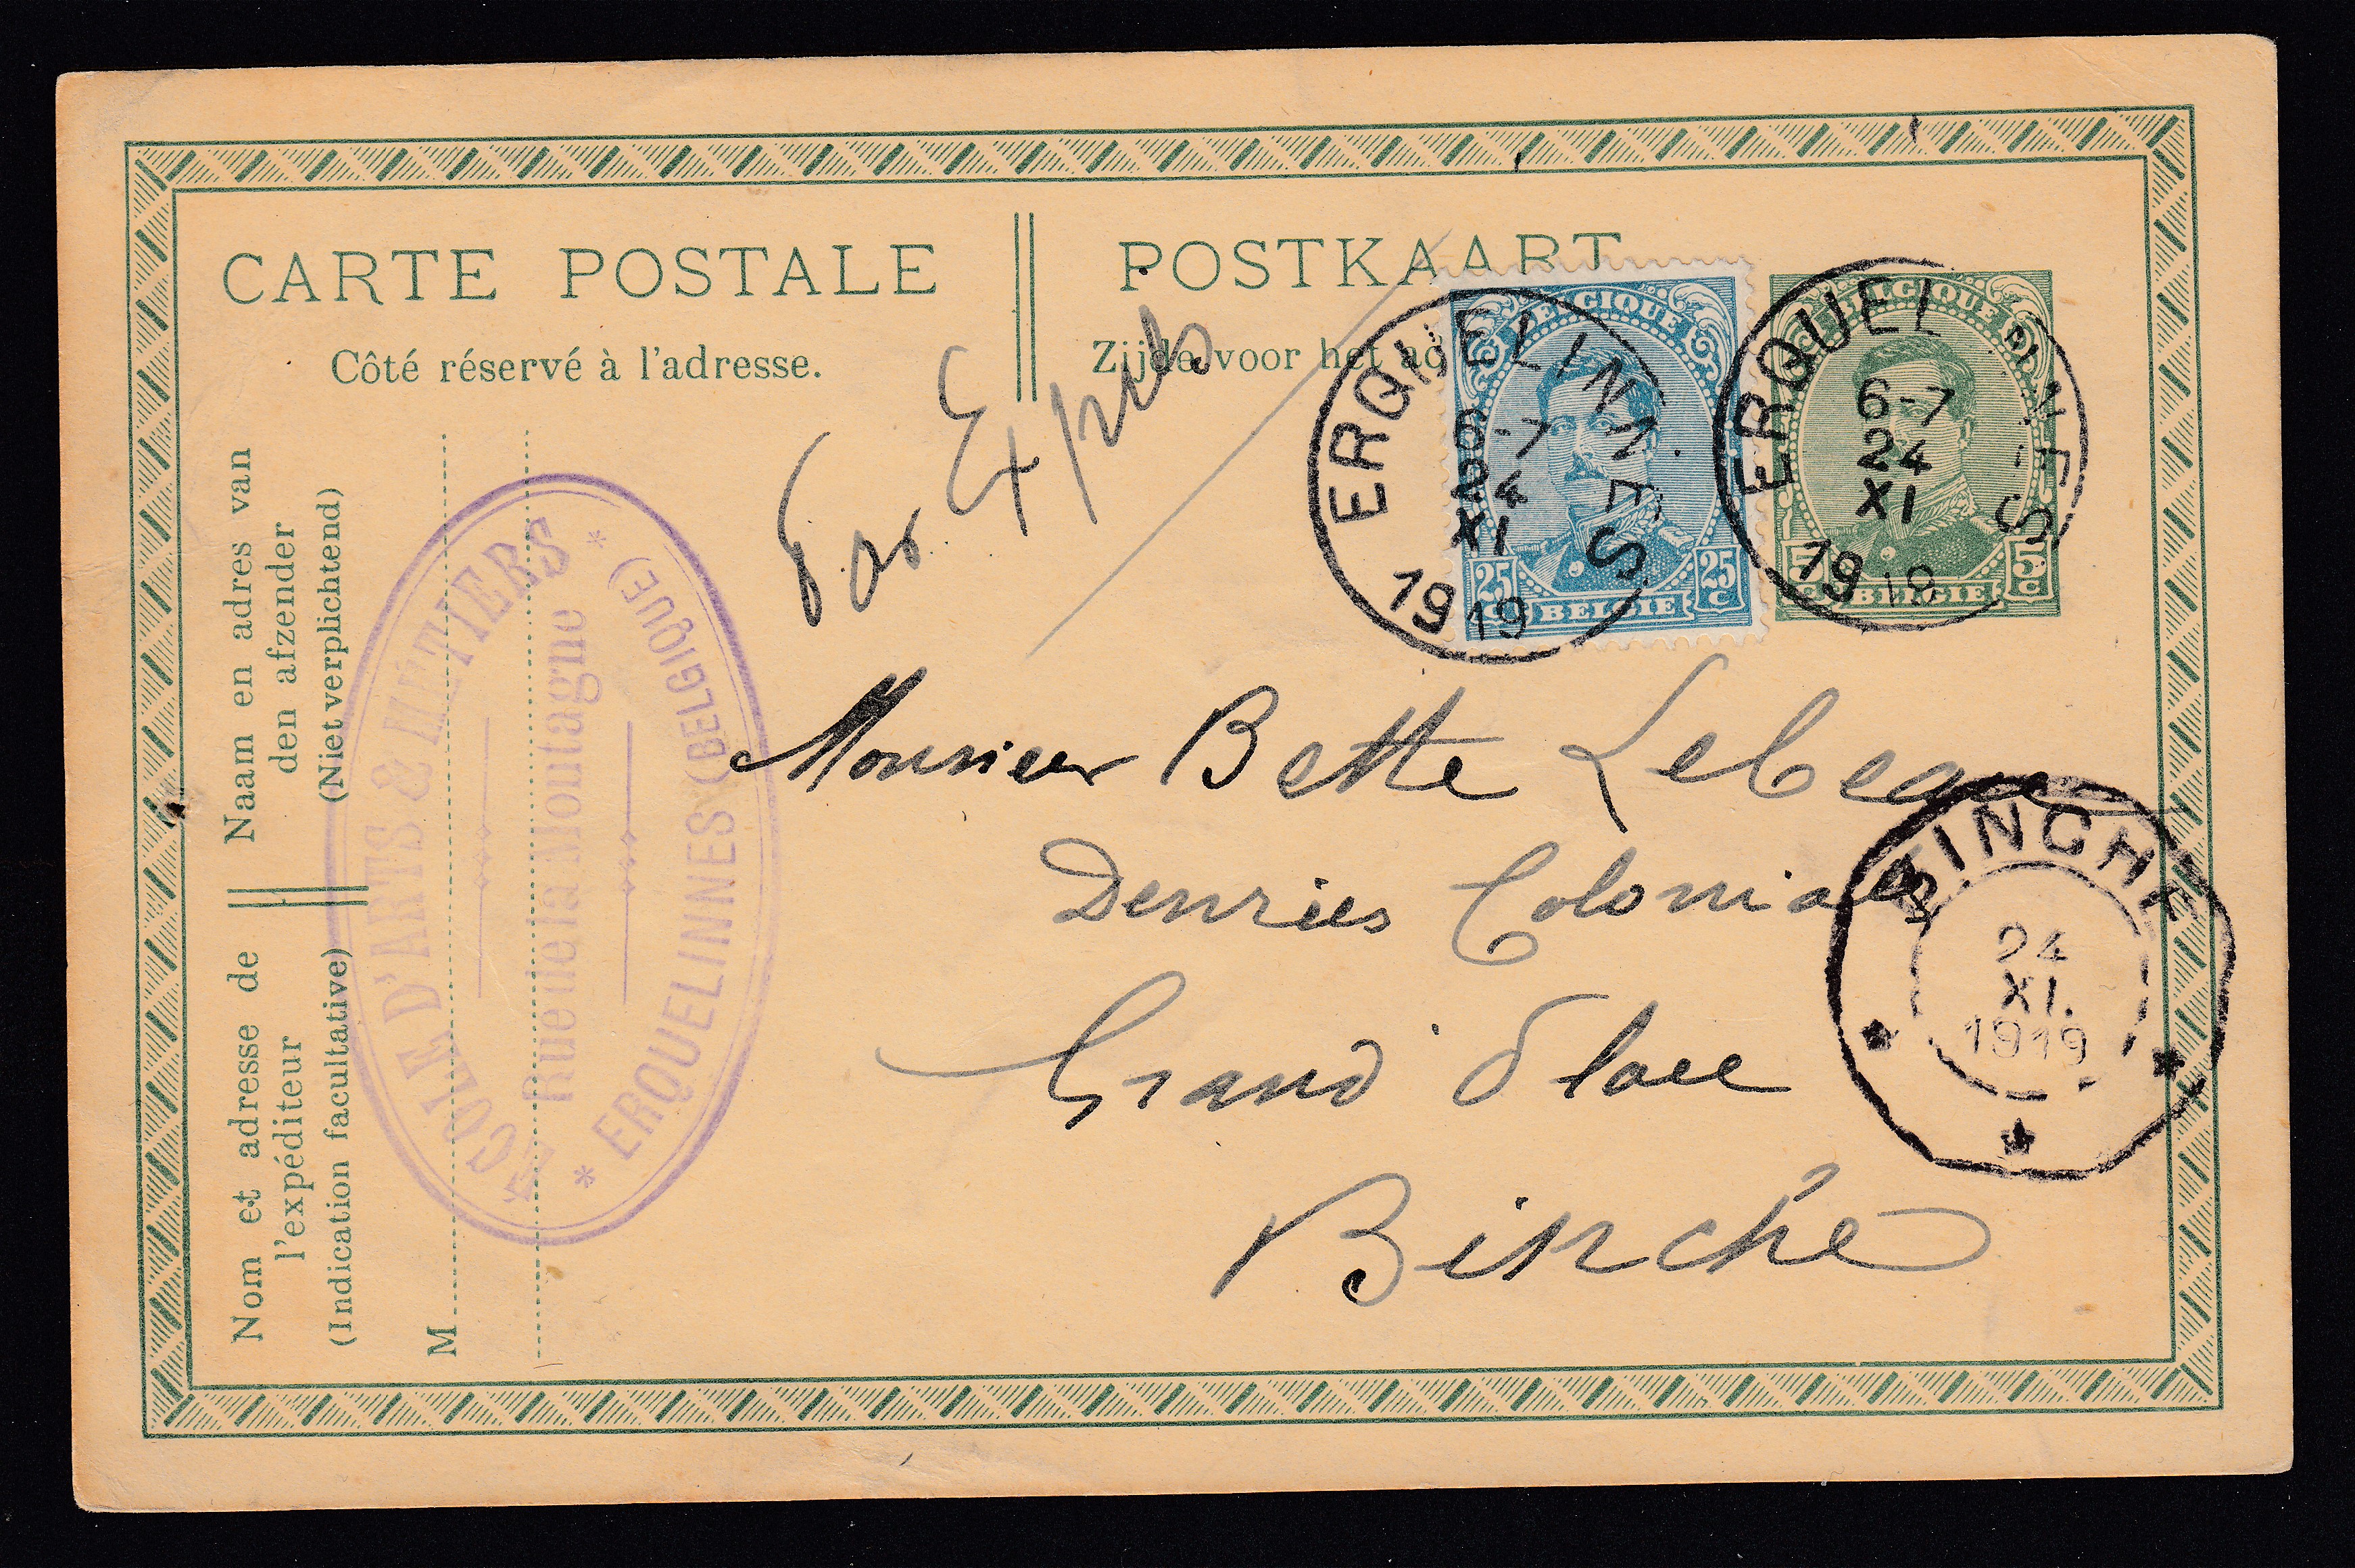 CARTE POSTALE
POSTKAART
Côté réservé à l'adresse.
Zijde voor het ad
Par Exprès
BELGIQUE
25 C 25 C
BELGIE
BELGIQUE
5 C 5 C
BELGIE
ERQUELINNES
6-7
24
XI
1919
ERQUELINNES
6-7
24
XI
1919
Naam en adres van
den afzender
(Niet verplichtend)
Nom et adresse de
l'expéditeur
(Indication facultative)
M
ECOLE D'ARTS & MÉTIERS
Rue de la Montagne
* ERQUELINNES (BELGIQUE) *
Monsieur Bette Lebegue
Denrées Coloniales
Grand Place
Binche
BINCHE
24
XI.
1919